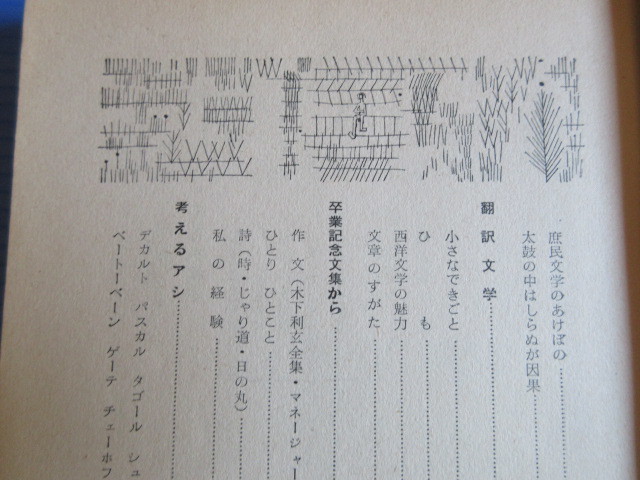 庶民文学のあけぼの
太鼓の中はしらぬが因果
翻訳文学
小さなできごと
ひも
西洋文学の魅力
文章のすがた
卒業記念文集から
作文(木下利玄全集・マネージャー
ひとり ひとこと
詩(時・じゃり道・日の丸)
私の経験
考えるアシ
デカルト パスカル タゴール シュ
ベートーベン ゲーテ チェーホフ